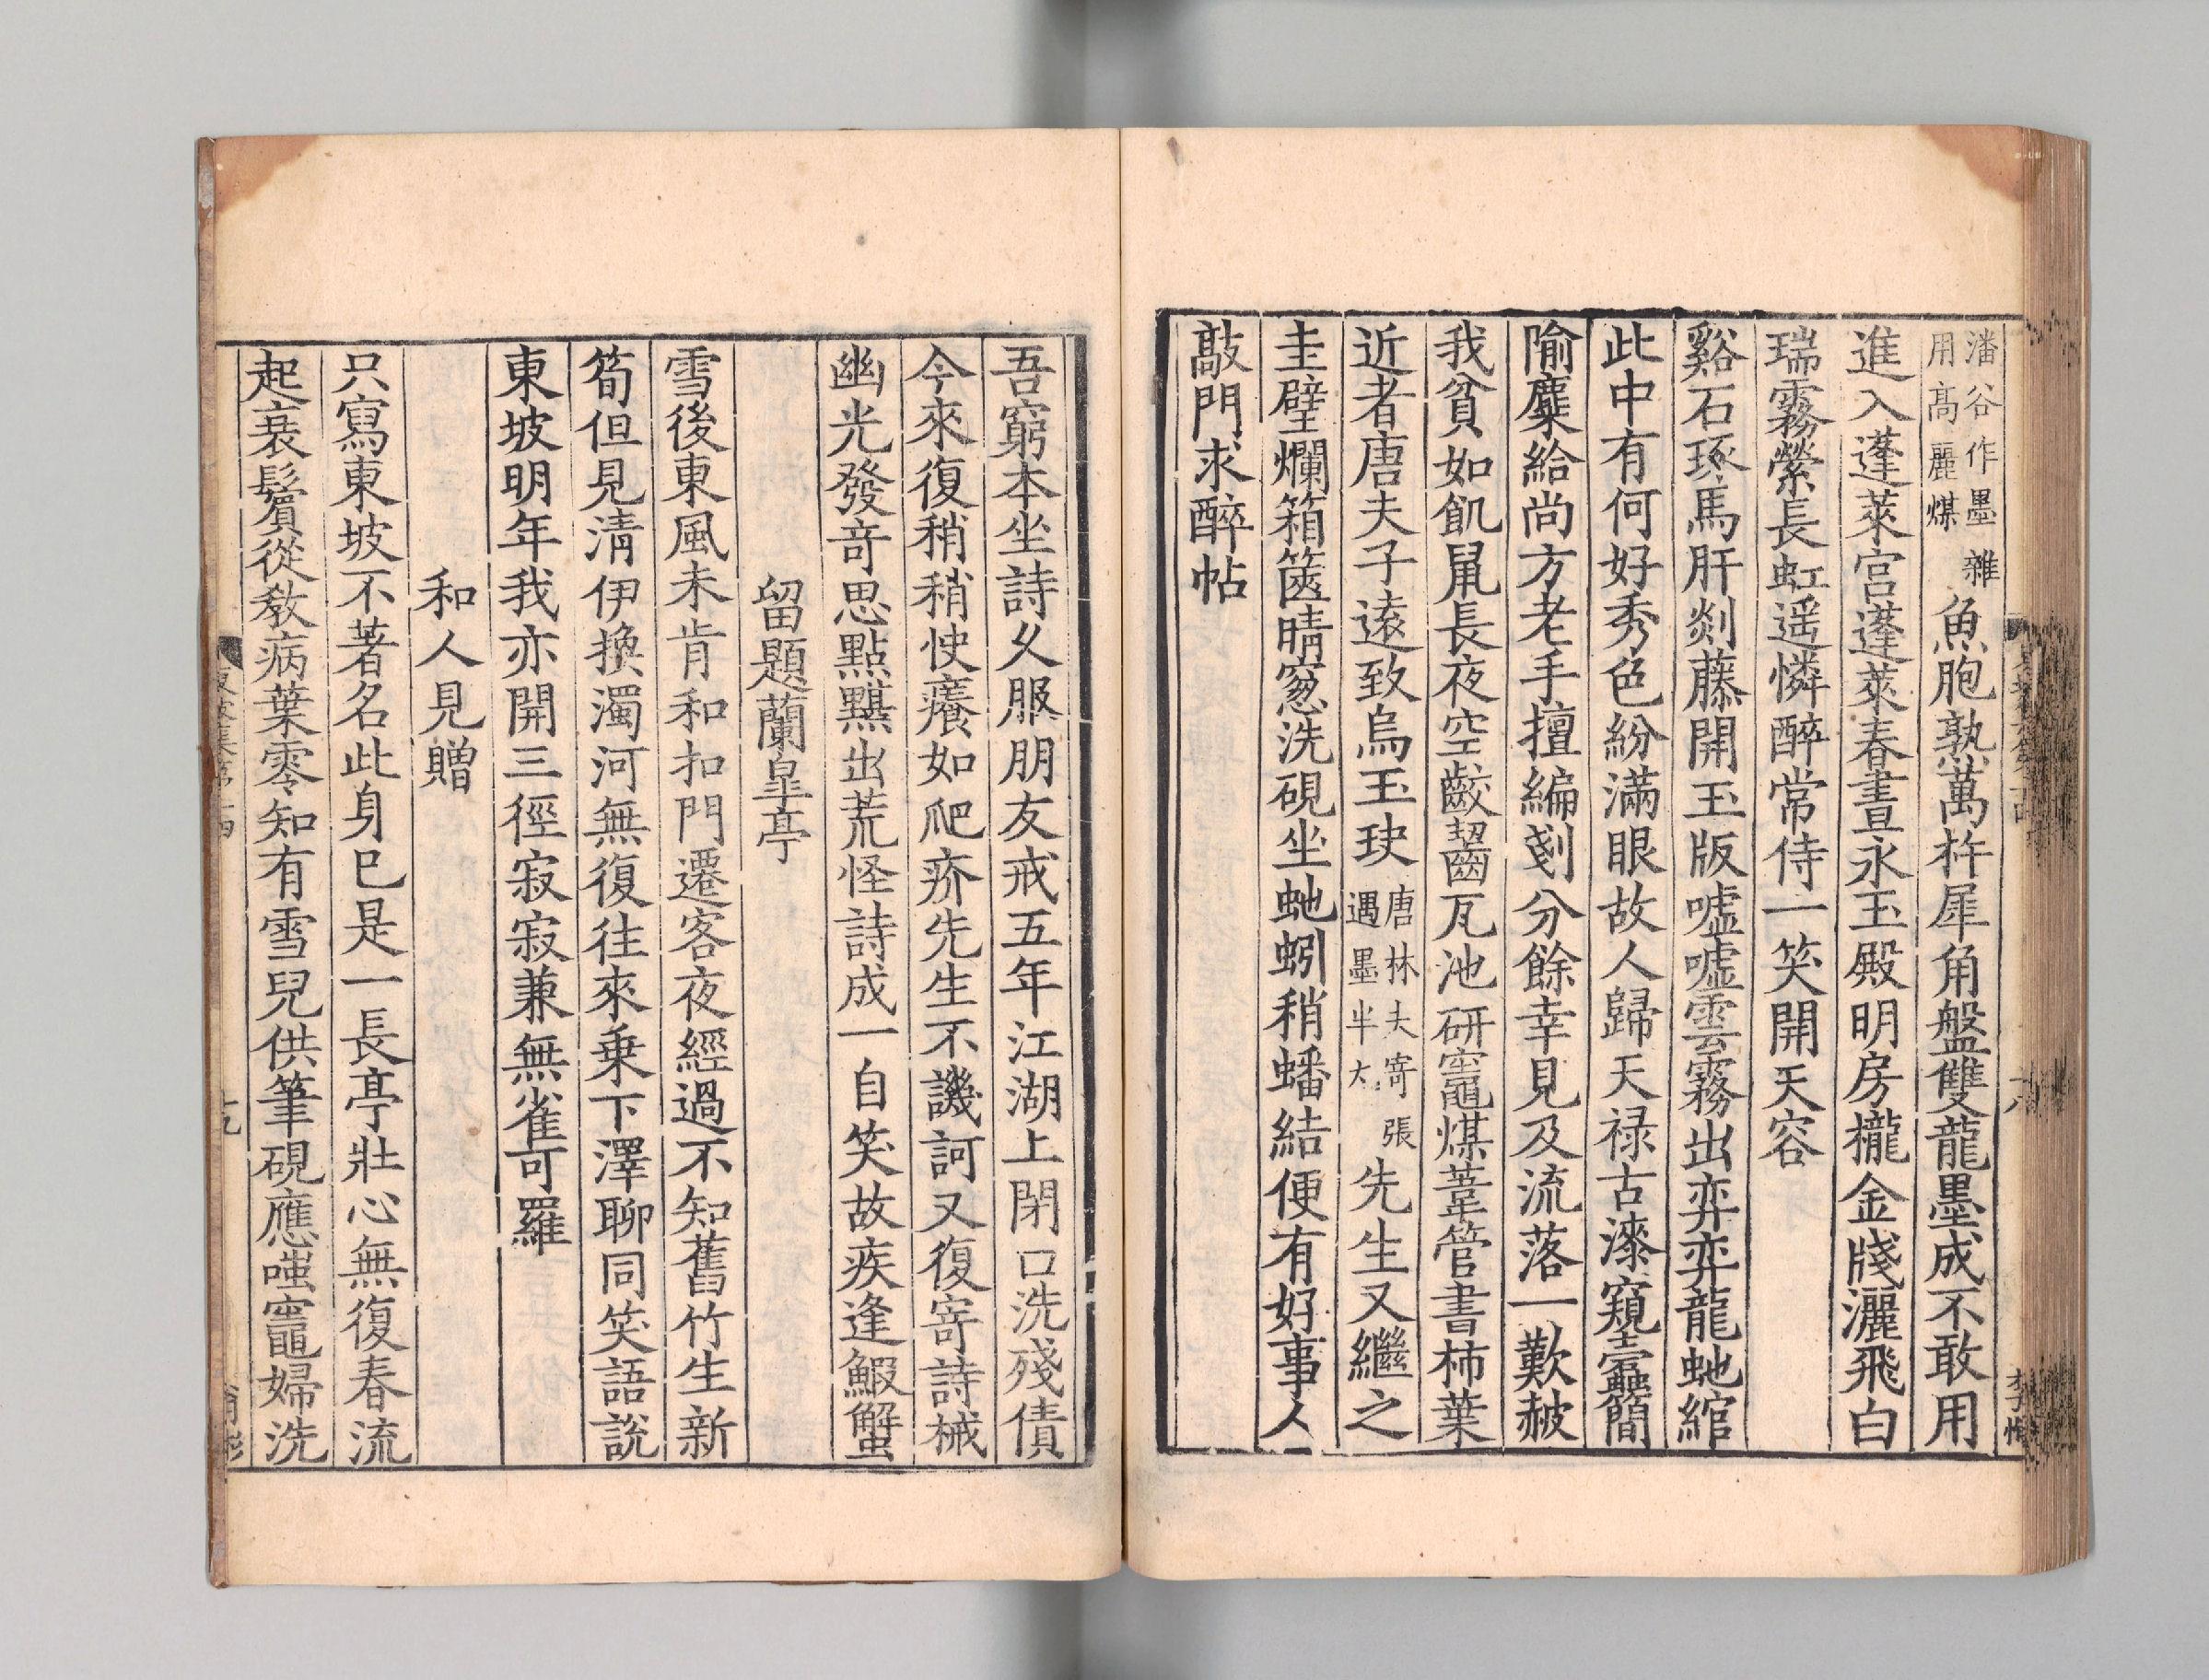 潘谷作墨雜用高麗煤魚胞熟萬杵犀角盤雙龍墨成不敢用
進入蓬萊宮蓬萊春晝永玉殿明房櫳金牋灑飛白
瑞霧縈長虹遥憐醉常侍一笑開天容
谿石琢馬肝剡藤開玉版噓噓雲霧出弈弈龍虵綰
此中有何好秀色紛滿眼故人歸天禄古漆窺蠹簡
隃麋給尚方老手擅編剗分餘幸見及流落一歎赧
我貧如飢鼠長夜空齩齧瓦池研竈煤葦管書柿葉
近者唐夫子遠致烏玉玦唐林夫寄張遇墨半丸先生又繼之
圭璧爛箱篋晴窻洗硯坐虵蚓稍蟠結便有好事人
敲門求醉帖
吾窮本坐詩久服朋友戒五年江湖上閉口洗殘債
今來復稍稍快癢如爬疥先生不譏訶又復寄詩械
幽光發奇思點黮出荒怪詩成一自笑故疾逢鰕蟹
留題蘭皐亭
雪後東風未肯和扣門遷客夜經過不知舊竹生新
筍但見清伊換濁河無復往來乗下澤聊同笑語說
東坡明年我亦開三徑寂寂兼無雀可羅
和人見贈
只寫東坡不著名此身已是一長亭壯心無復春流
起衰鬢從教病葉零知有雪兒供筆硯應嗤竈婦洗
十九